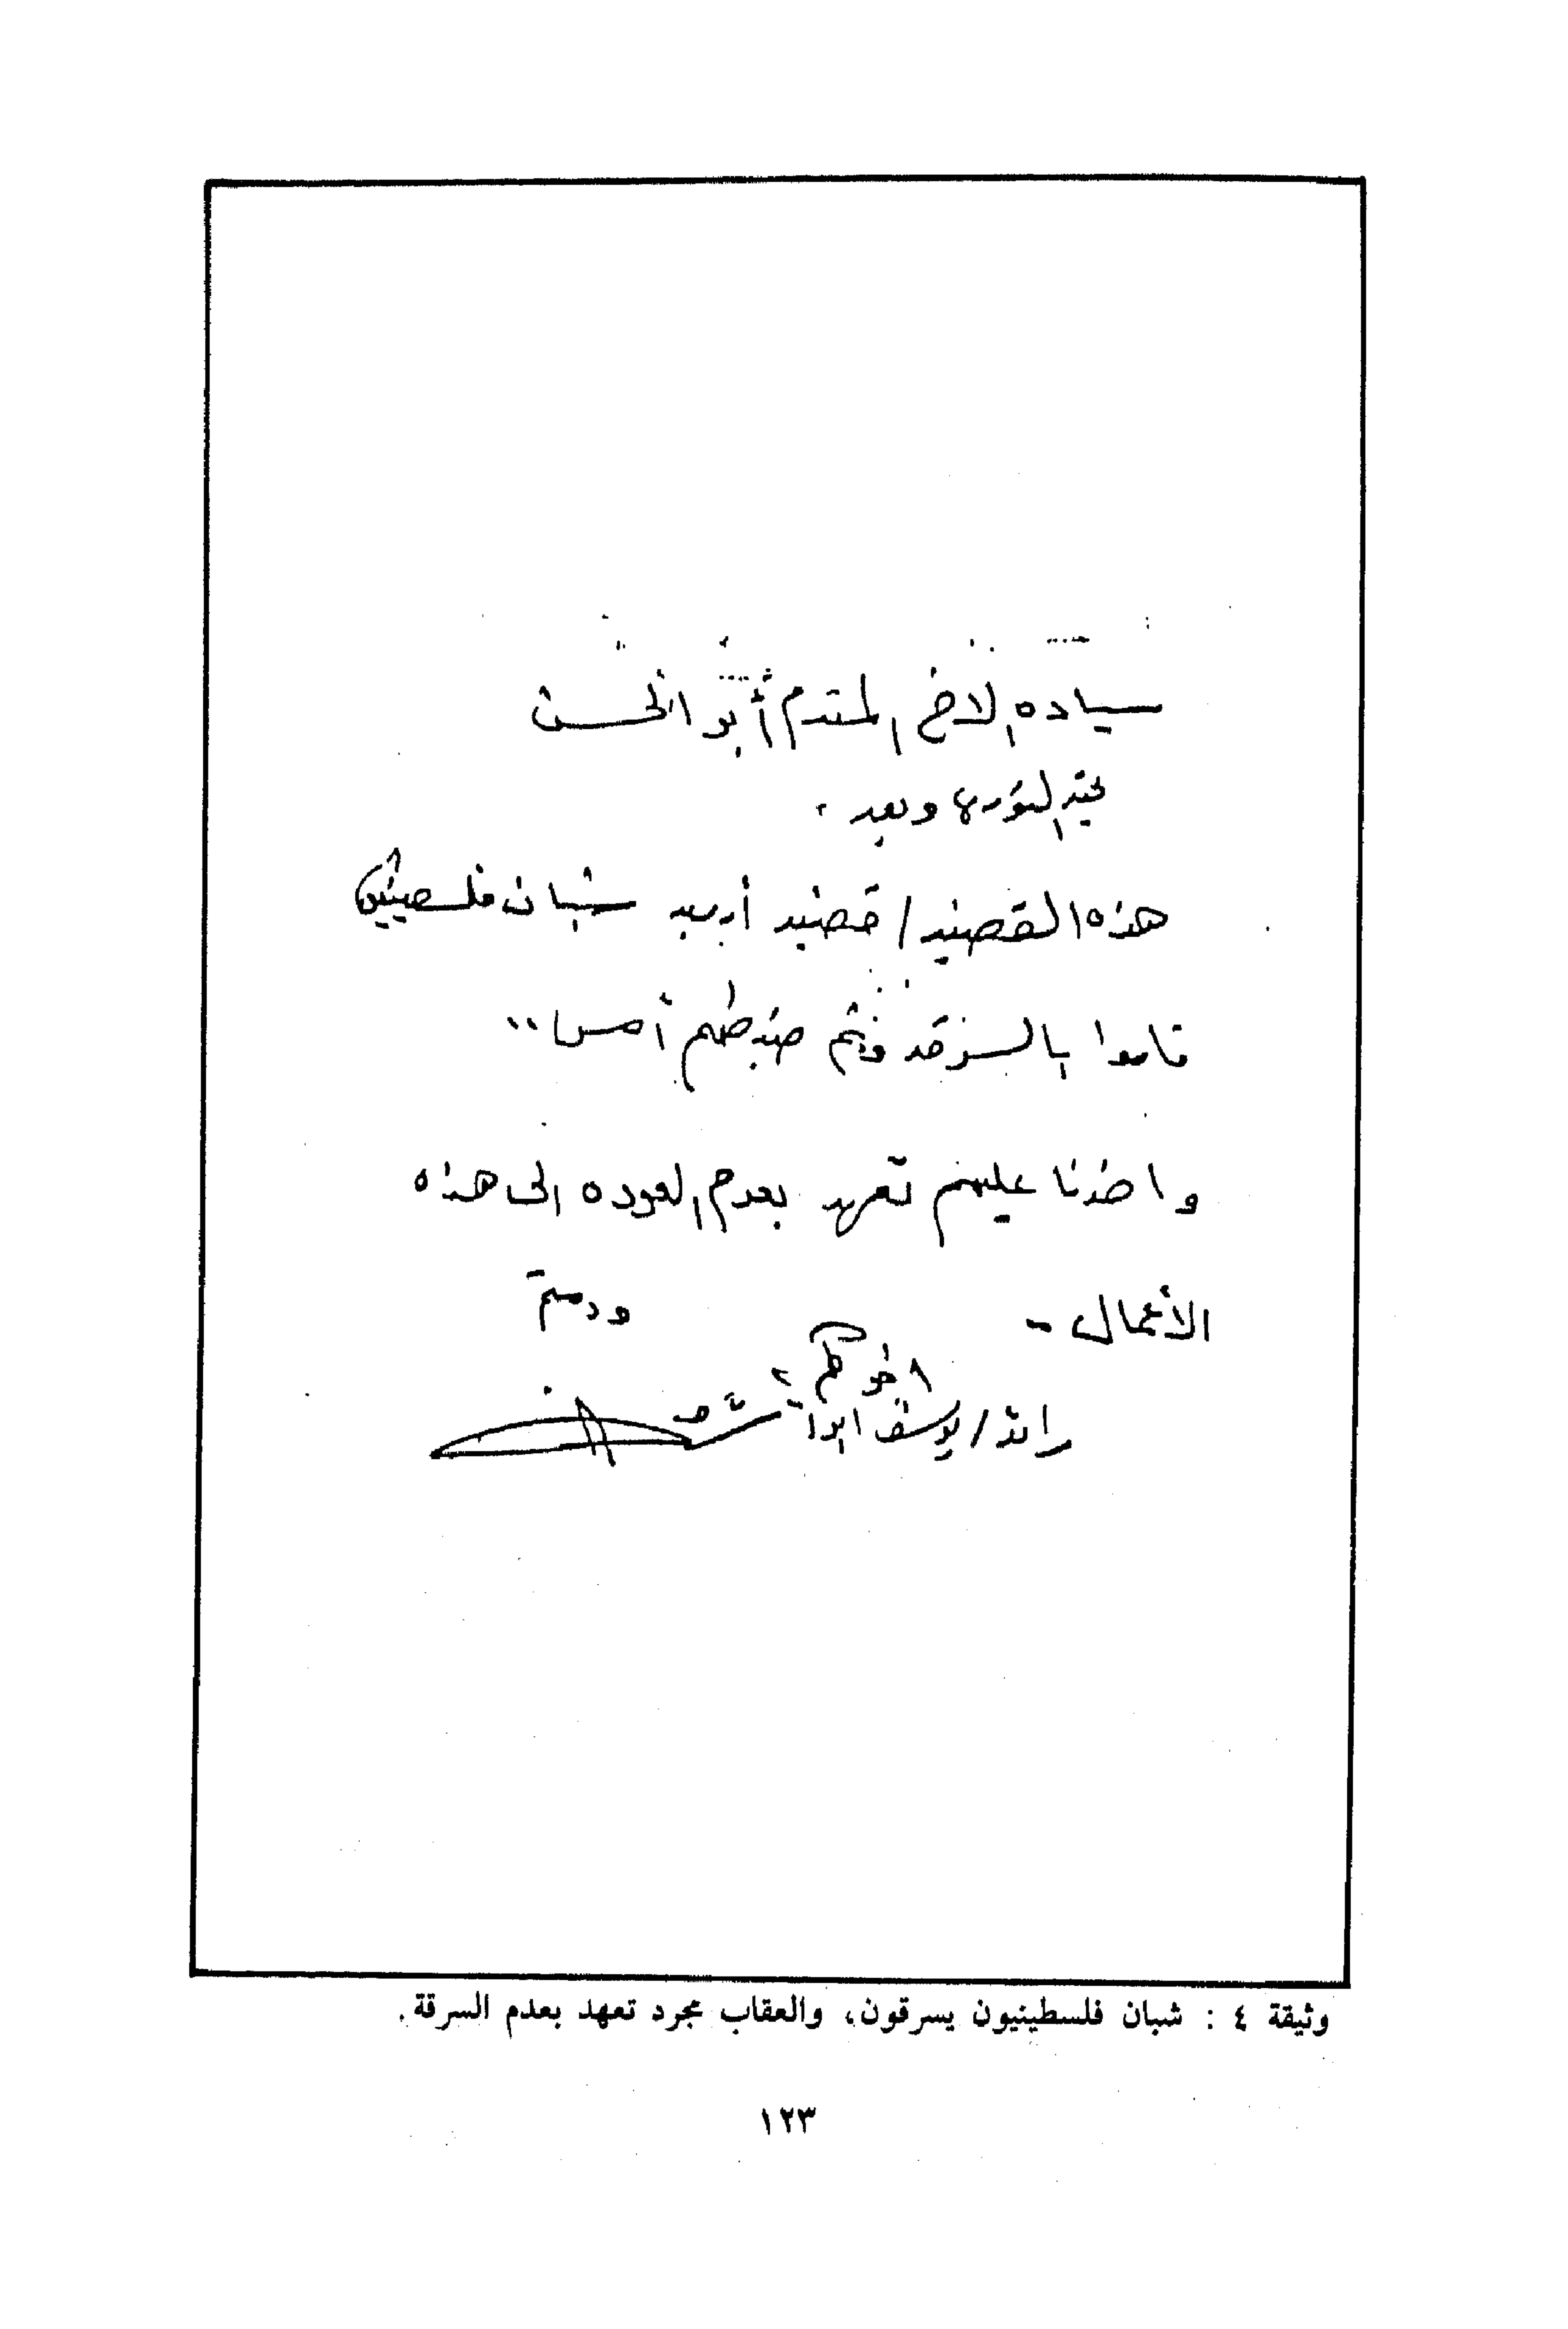 سياده الاخ المقدم أبو الحسن
تحية الثورة وبعد ،
هذه القضية / قضية أربعة شبان فلسطينين
قاموا بالسرقة وتم ضبطهم أمس ..
واخذنا عليهم تعهد بعدم العوده الى هذه
الأعمال -
ودمتم
اخوكم
رائد / يوسف ابو
وثيقة ٤ : شبان فلسطينيون يسرقون، والعقاب مجرد تعهد بعدم السرقة.
١٢٣